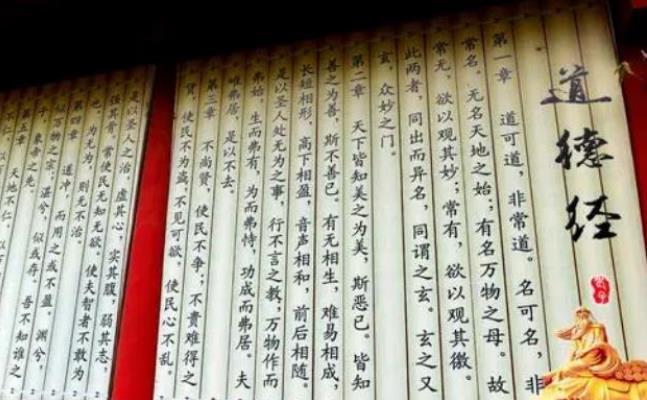 道德经
第一章 道可道，非常道。名可名，非
常名。无名天地之始；有名万物之母。故
常无，欲以观其妙；常有，欲以观其徼。
此两者，同出而异名，同谓之玄。玄之又
玄，众妙之门。
第二章 天下皆知美之为美，斯恶已。皆知
善之为善，斯不善已。有无相生，难易相成，
长短相形，高下相盈，音声相和，前后相随。
是以圣人处无为之事，行不言之教；万物作而
弗始，生而弗有，为而弗恃，功成而弗居。夫
唯弗居，是以不去。
第三章 不尚贤，使民不争；不贵难得之
货，使民不为盗；不见可欲，使民心不乱。
是以圣人之治，虚其心，实其腹，弱其志，
强其骨。常使民无知无欲。使夫智者不敢为
也。为无为，则无不治。
第四章 道冲，而用之或不盈。渊兮，
似万物之宗。湛兮，似或存。吾不知谁之
子，象帝之先。
第五章 天地
不仁，以万